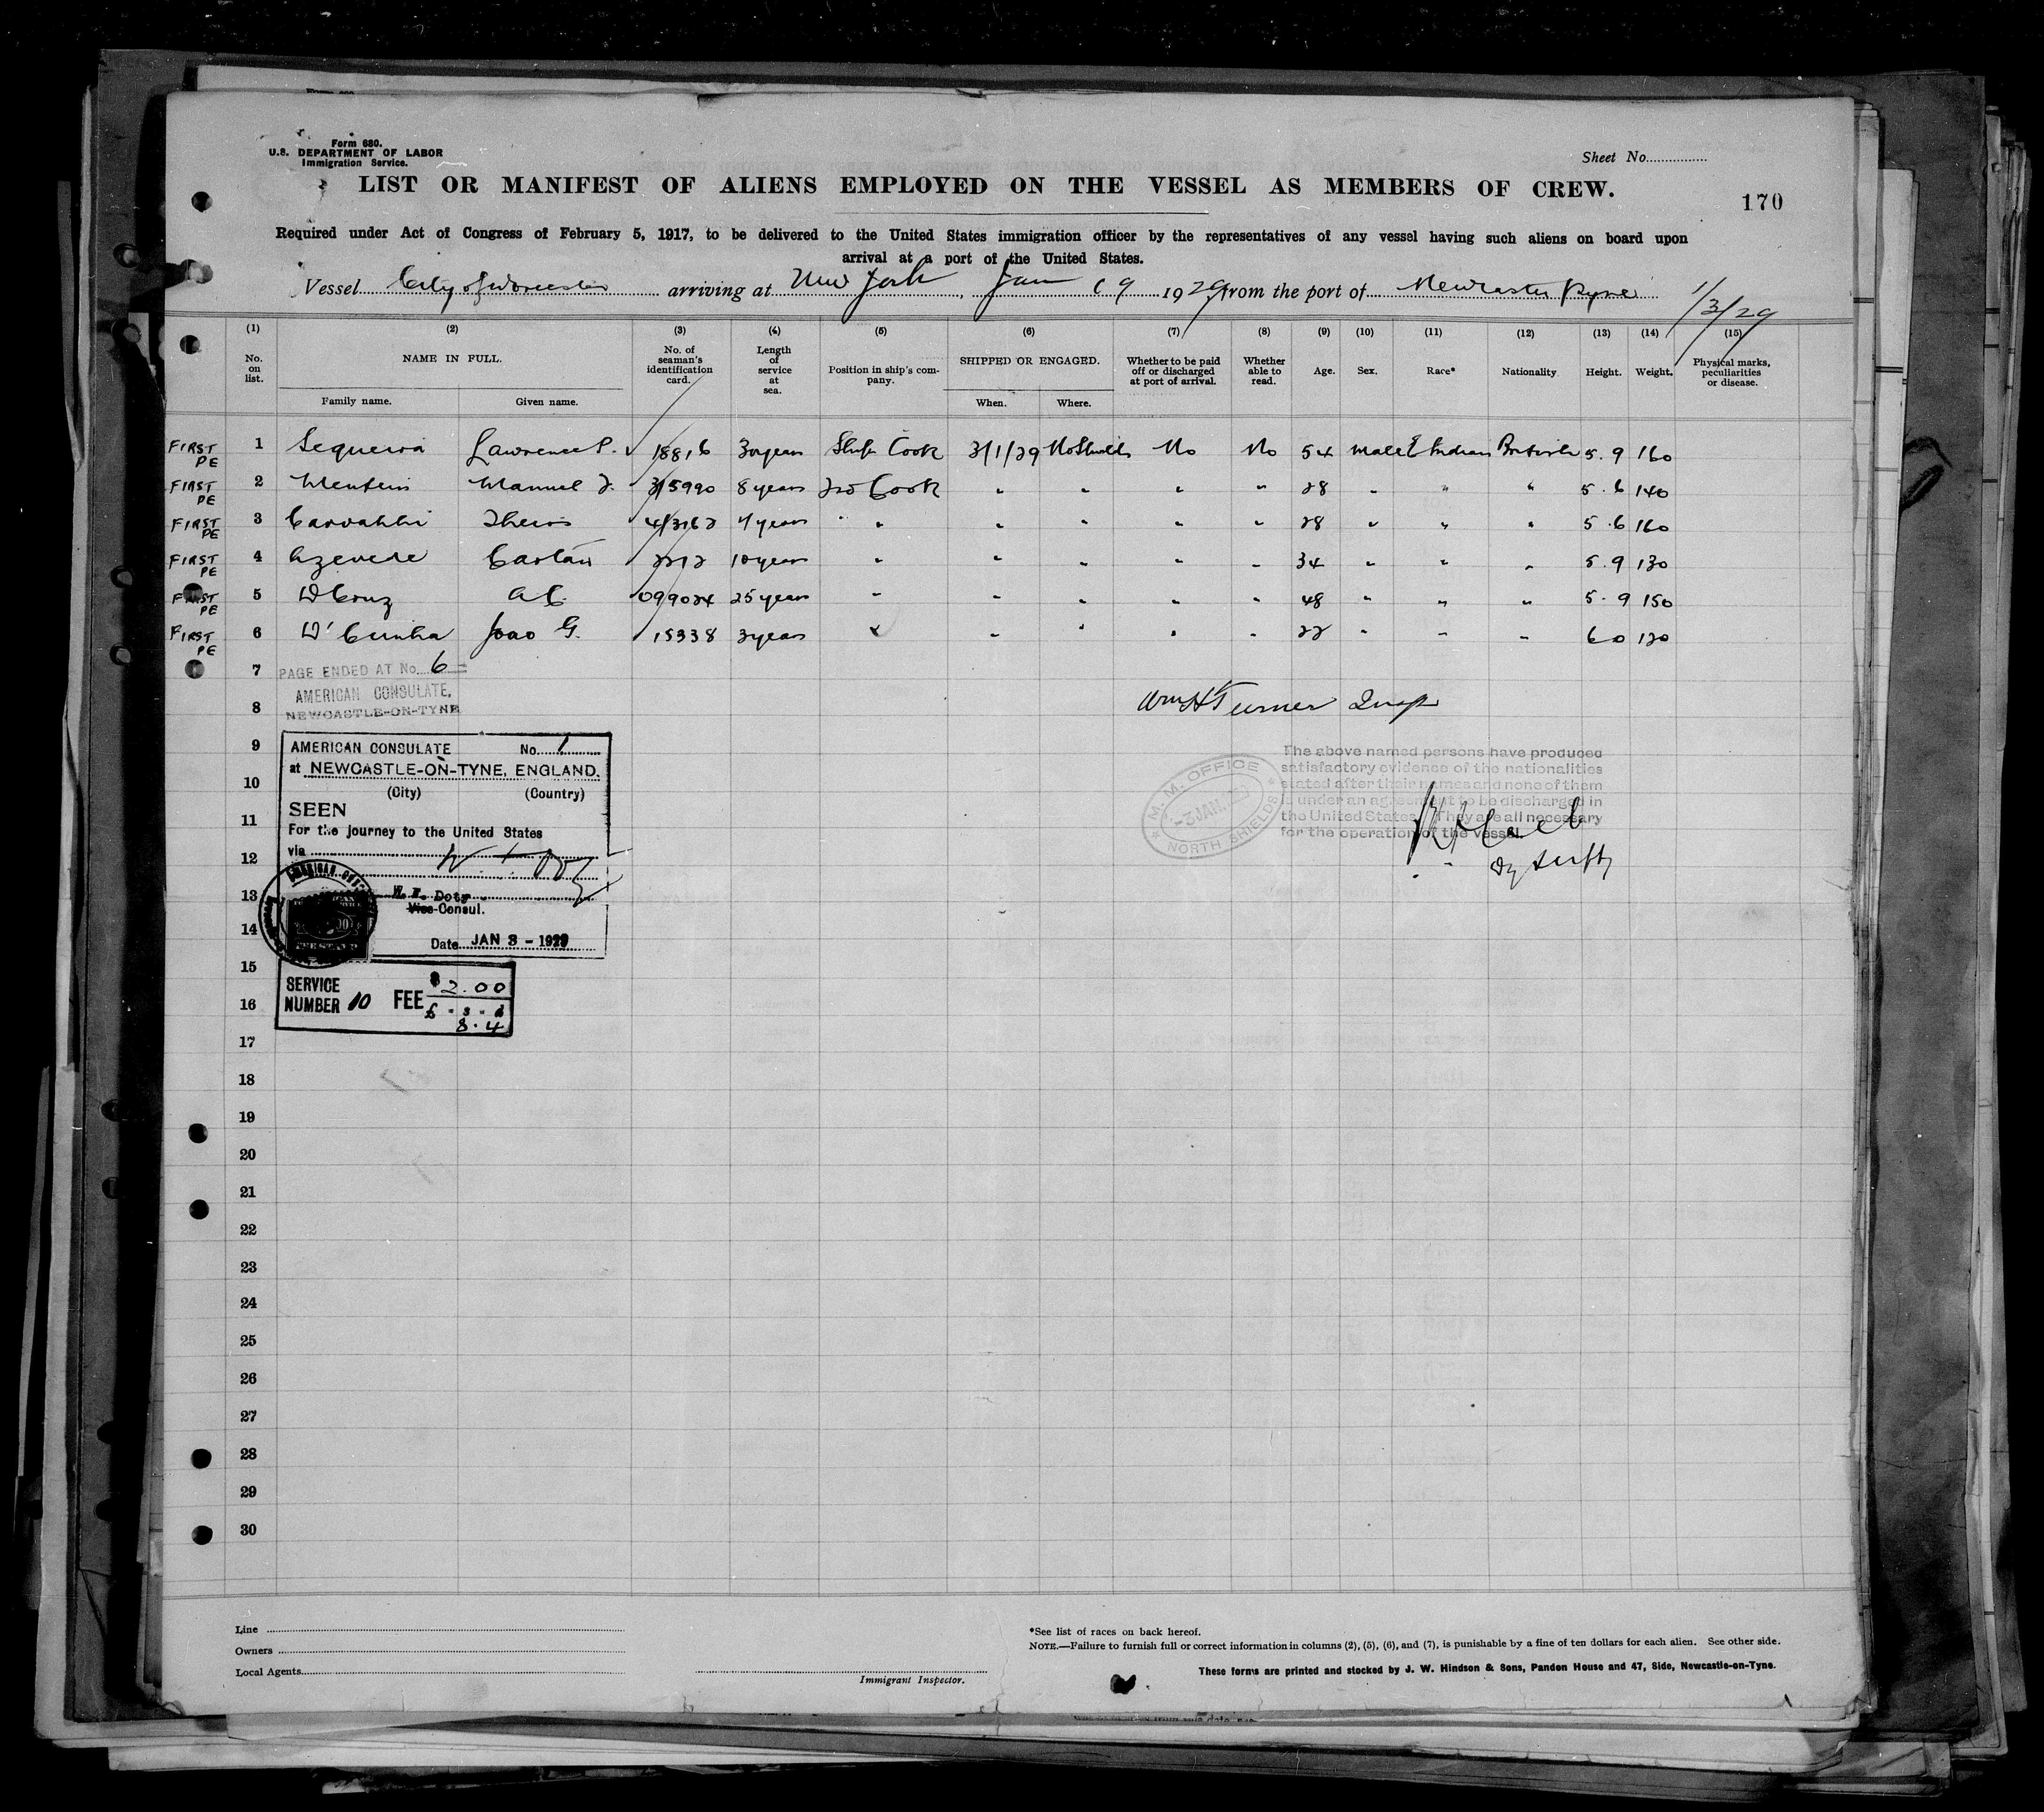 Form 680.
U.S. DEPARTMENT OF LABOR
Immigration Service.
Sheet No.
LIST OR MANIFEST OF ALIENS EMPLOYED ON THE VESSEL AS MEMBERS OF CREW.
170
Required under Act of Congress of February 5, 1917, to be delivered to the United States immigration officer by the representatives of any vessel having such aliens on board upon
arrival at a port of the United States.
Vessel City of Worcester arriving at New York, Jan 19 1929, from the port of Newcastle Tyne
1/3/29
(1) (2) (3) (4) (5) (6) (7) (8) (9) (10) (11) (12) (13) (14) (15)
No. on list. NAME IN FULL. Family name. Given name. No. of seaman's identification card. Length of service at sea. Position in ship's company. SHIPPED OR ENGAGED. When. Where. Whether to be paid off or discharged at port of arrival. Whether able to read. Age. Sex. Race* Nationality Height. Weight. Physical marks, peculiarities or disease.
FIRST PE 1 Sequeira Lawrence P. 18816 30 years Ship Cook 3/1/29 No Shields No No 54 Male E Indian British 5.9 160
FIRST PE 2 Manuel 315990 8 years 2nd Cook " " " " 28 " " " 5.6 140
FIRST PE 3 " " " " " 28 " " " 5.6 160
FIRST PE 4 10 years " " " " " 34 " " " 5.9 130
FIRST PE 5 D'Cruz A C. 099024 25 years " " " " " 48 " " " 5.9 150
FIRST PE 6 D'Cunha Joao G. 15338 3 years " " " " 22 " " " 6 0 120
7 PAGE ENDED AT No. 6
AMERICAN CONSULATE,
8 NEWCASTLE-ON-TYNE
Wm H Turner Insp
9 AMERICAN CONSULATE No. 1
at NEWCASTLE-ON-TYNE, ENGLAND.
10 (City) (Country)
SEEN
11 For the journey to the United States
via
12
13 W. F. Doty
Vice-Consul.
14 Date JAN 3 - 1929
M. M. OFFICE
-3 JAN.
NORTH SHIELDS
The above named persons have produced
satisfactory evidence of the nationalities
stated after their names and none of them
is under an agreement to be discharged in
the United States. They are all necessary
for the operation of the vessel
15 SERVICE
16 NUMBER 10 FEE $2.00
£ . s . d
8.4
17
18
19
20
21
22
23
24
25
26
27
28
29
30
Line
Owners
Local Agents
Immigrant Inspector.
*See list of races on back hereof.
NOTE.—Failure to furnish full or correct information in columns (2), (5), (6), and (7), is punishable by a fine of ten dollars for each alien. See other side.
These forms are printed and stocked by J. W. Hindson & Sons, Pandon House and 47, Side, Newcastle-on-Tyne.